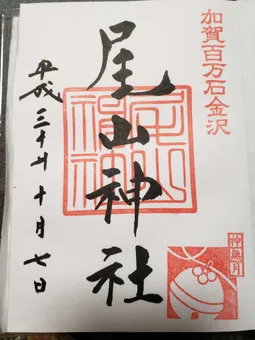 加賀百万石金沢
尾山神社
平成三十年十月七日
神無月